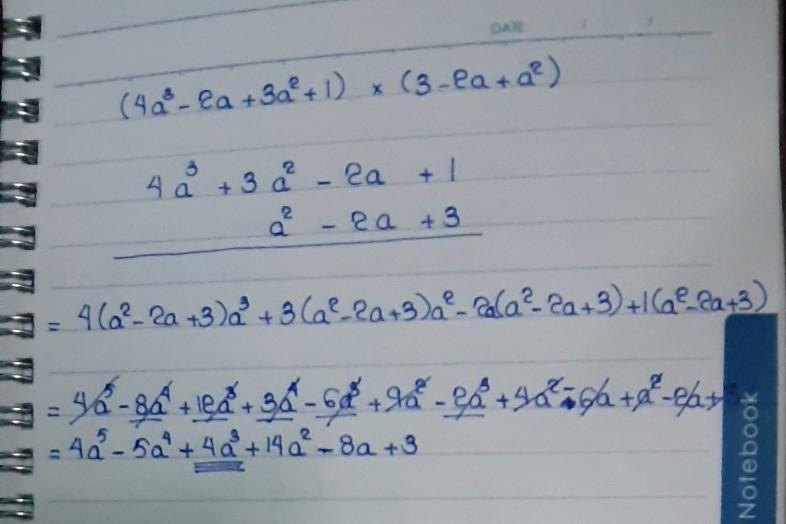 DATE / /
(4a³ - 2a + 3a² + 1) × (3 - 2a + a²)
4a³ + 3a² - 2a + 1
a² - 2a + 3
= 4(a² - 2a + 3)a³ + 3(a² - 2a + 3)a² - 2a(a² - 2a + 3) + 1(a² - 2a + 3)
= 4a⁵ - 8a⁴ + 12a³ + 3a⁴ - 6a³ + 9a² - 2a³ + 4a² - 6a + a² - 2a + 3
= 4a⁵ - 5a⁴ + 4a³ + 14a² - 8a + 3
Notebook